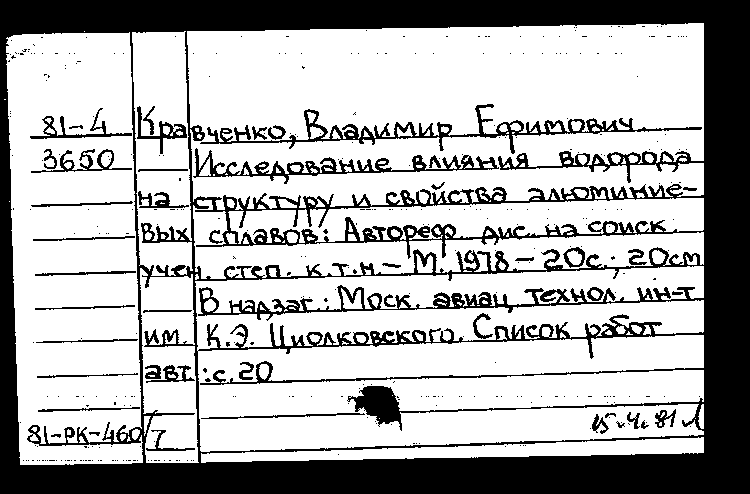 81-4 Кравченко, Владимир Ефимович.
3650 Исследование влияния водорода
на структуру и свойства алюминие-
вых сплавов: Автореф. дис. на соиск.
учен. степ. к.т.н. - М., 1978. - 20с.; 20см
В надзаг.: Моск. авиац. технол. ин-т
им. К.Э. Циолковского. Список работ
авт.: с.20
81-РК-460/7